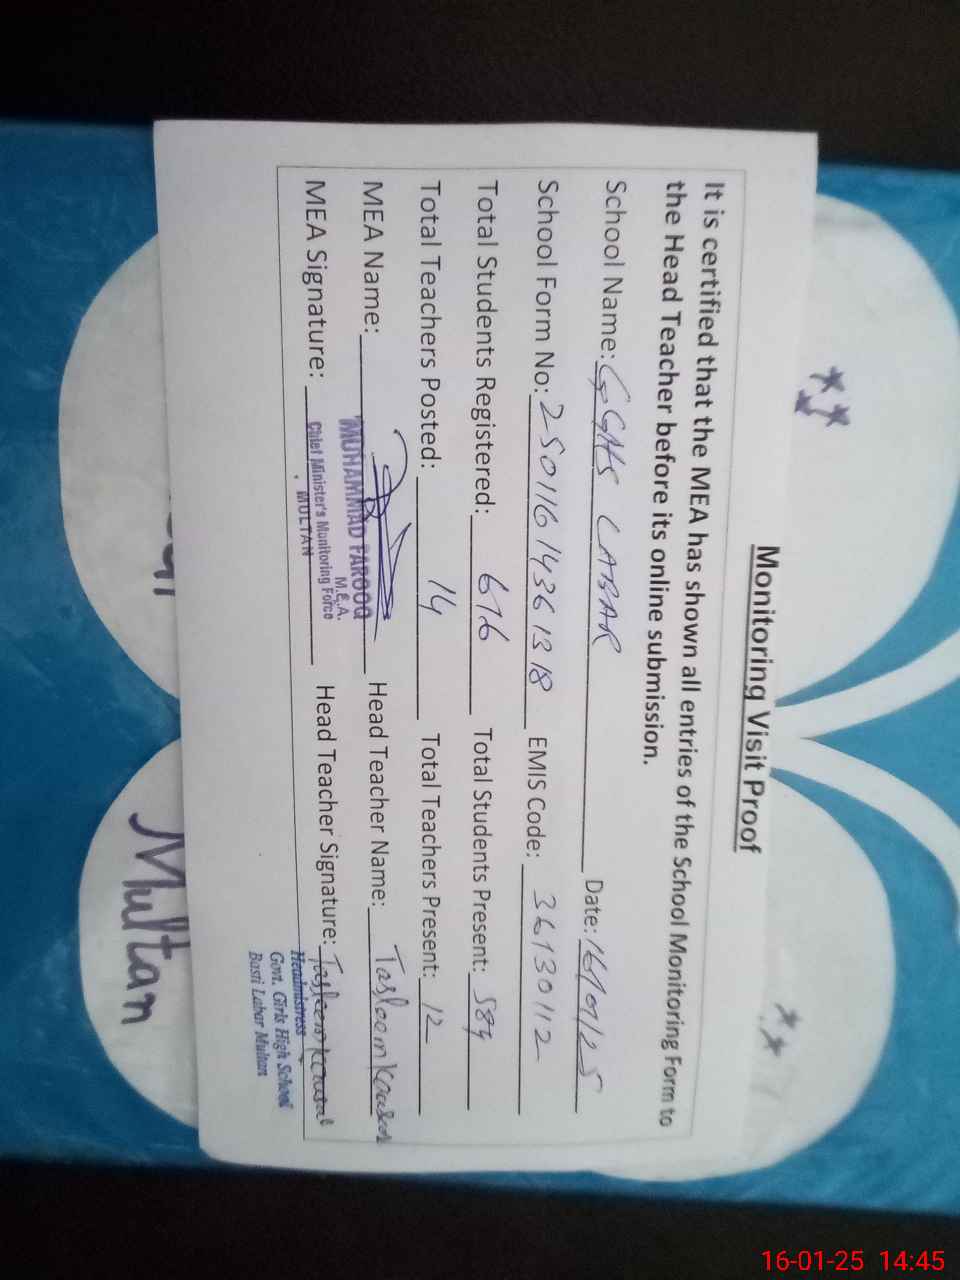 Monitoring Visit Proof
It is certified that the MEA has shown all entries of the School Monitoring Form to
the Head Teacher before its online submission.
School Name: GGHS LABAR Date: 16/01/25
School Form No: 25011614361318 EMIS Code: 36130112
Total Students Registered: 616 Total Students Present: 589
Total Teachers Posted: 14 Total Teachers Present: 12
MEA Name: Head Teacher Name: Tasleem Kausar
MUHAMMAD FAROOQ
M.E.A.
Chief Minister's Monitoring Force
MULTAN
MEA Signature: Head Teacher Signature: Tasleem Kausar
Headmistress
Govt. Girls High School
Basti Labar Multan
Multan
16-01-25 14:45